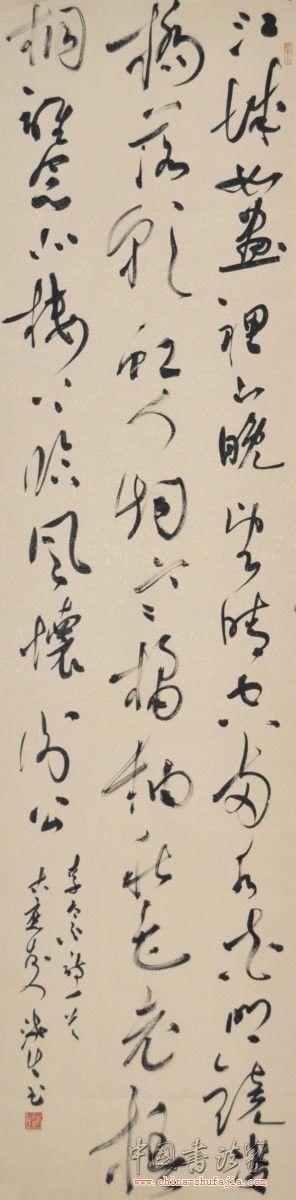 江城如畫裡山晚望晴空兩水夾明鏡雙
橋落彩虹人烟寒橘柚秋色老梧
桐誰念北樓上臨風懷謝公
李白詩一首
中国书法家
www.china-shufajia.com